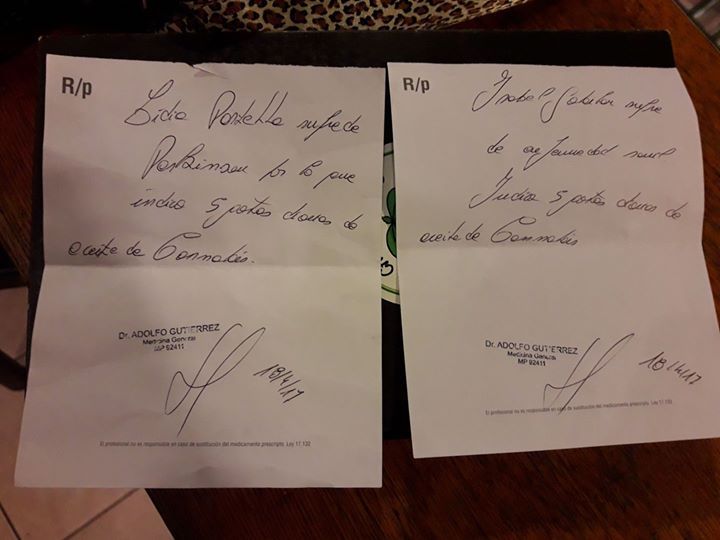 R/p
Lidia sufre de
Parkinson por lo que
indico 5 gotas diarias de
aceite de Cannabis.
Dr. ADOLFO GUTIERREZ
Medicina General
MP 92411
18/4/17
El profesional no es responsable en caso de sustitución del medicamento prescripto. Ley 17.132
R/p
Isabel sufre
de enfermedad
Indico 5 gotas diarias de
aceite de Cannabis
Dr. ADOLFO GUTIERREZ
Medicina General
MP 92411
18/4/17
El profesional no es responsable en caso de sustitución del medicamento prescripto. Ley 17.132